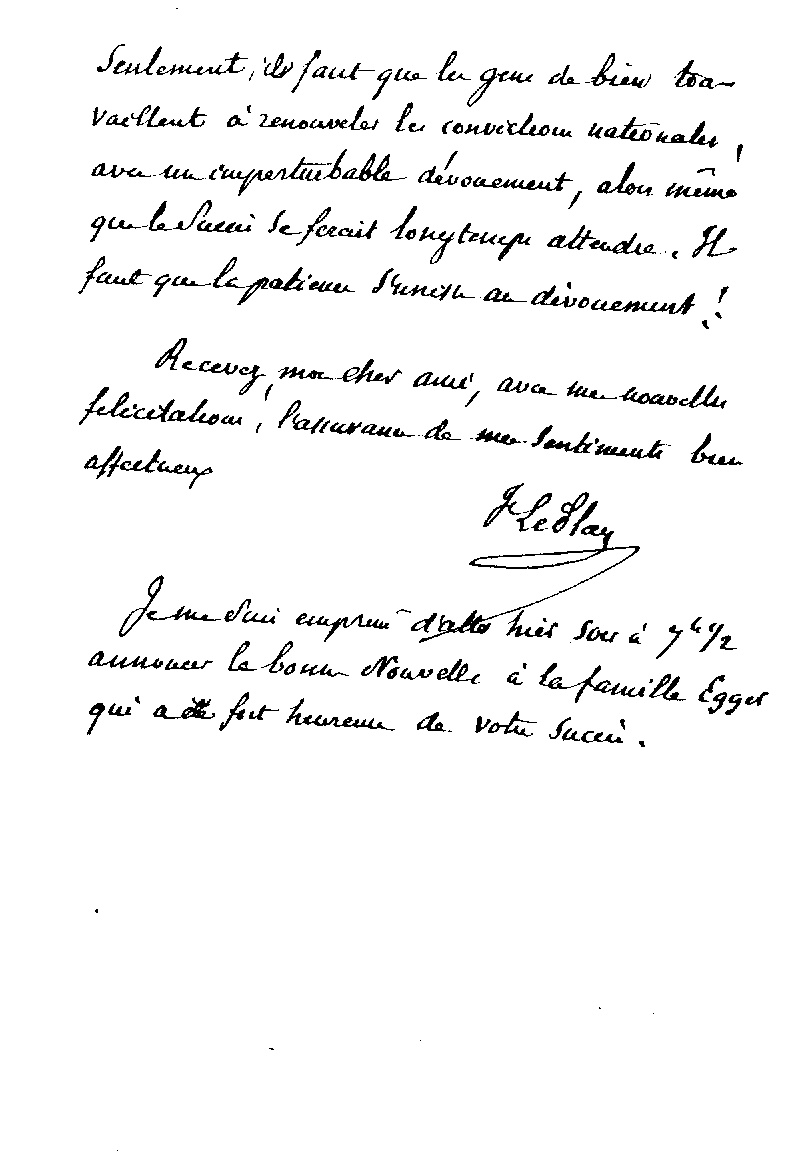 Seulement, il faut que les gens de bien tra-
vaillent à renouveler les convictions nationales,
avec un imperturbable dévouement, alors même
que le succès se ferait longtemps attendre. Il
faut que la patience s'unisse au dévouement !
Recevez, mon cher ami, avec mes nouvelles
félicitations, l'assurance de mes sentiments bien
affectueux
F Le Play
Je me suis empressé d'aller hier soir à 7h 1/2
annoncer la bonne nouvelle à la famille Egger
qui a été fort heureuse de votre succès.